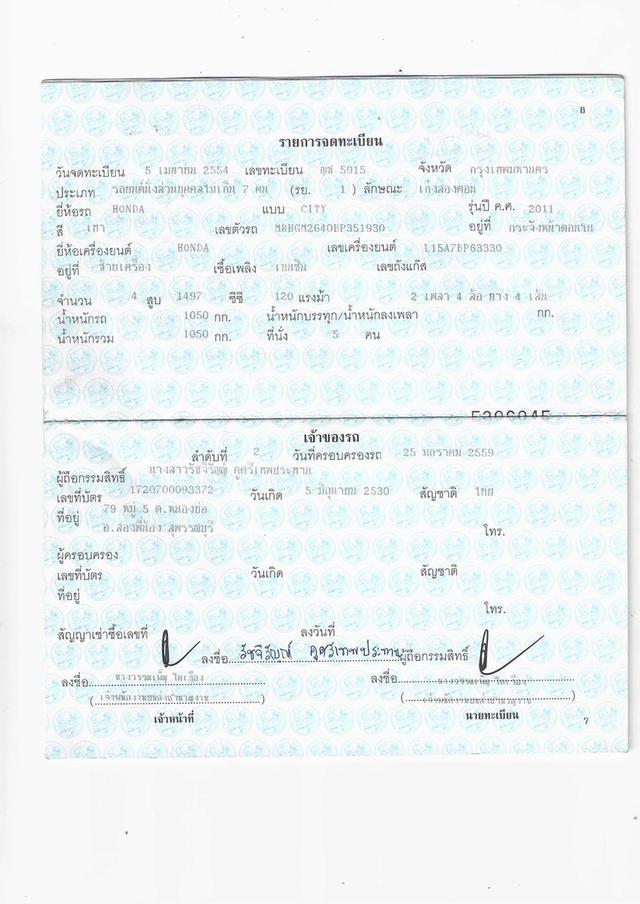 6
รายการจดทะเบียน
วันจดทะเบียน 5 เมษายน 2554 เลขทะเบียน 5915 จังหวัด กรุงเทพมหานคร
ประเภท รถยนต์นั่งส่วนบุคคลไม่เกิน 7 คน (รย. 1 ) ลักษณะ เก๋งสองตอน
ยี่ห้อรถ HONDA แบบ CITY รุ่นปี ค.ศ. 2011
สี เทา เลขตัวรถ MRHGM2640BP351930 อยู่ที่
ยี่ห้อเครื่องยนต์ HONDA เลขเครื่องยนต์ L15A7BP63330
อยู่ที่ ซ้ายเครื่อง เชื้อเพลิง เบนซิน เลขถังแก๊ส
จำนวน 4 สูบ 1497 ซีซี 120 แรงม้า 2 เพลา 4 ล้อ ยาง 4 เส้น
น้ำหนักรถ 1050 กก. น้ำหนักบรรทุก/น้ำหนักลงเพลา กก.
น้ำหนักรวม 1050 กก. ที่นั่ง 5 คน
เจ้าของรถ
ลำดับที่ 2 วันที่ครอบครองรถ 25 มกราคม 2559
ผู้ถือกรรมสิทธิ์ นางสาวรัชจิรัญญ์ คูศรีเทพประทาน
เลขที่บัตร 1720700093372 วันเกิด 5 มิถุนายน 2530 สัญชาติ ไทย
ที่อยู่ 79 หมู่ 5 ต.หนองบ่อ
อ.สองพี่น้อง สุพรรณบุรี โทร.
ผู้ครอบครอง
เลขที่บัตร วันเกิด สัญชาติ
ที่อยู่
โทร.
สัญญาเช่าซื้อเลขที่ ลงวันที่
ลงชื่อ คูศรีเทพประทาน ผู้ถือกรรมสิทธิ์
ลงชื่อ ลงชื่อ
(เจ้าพนักงานขนส่งชำนาญงาน) (เจ้าพนักงานขนส่งชำนาญงาน)
เจ้าหน้าที่ นายทะเบียน
7